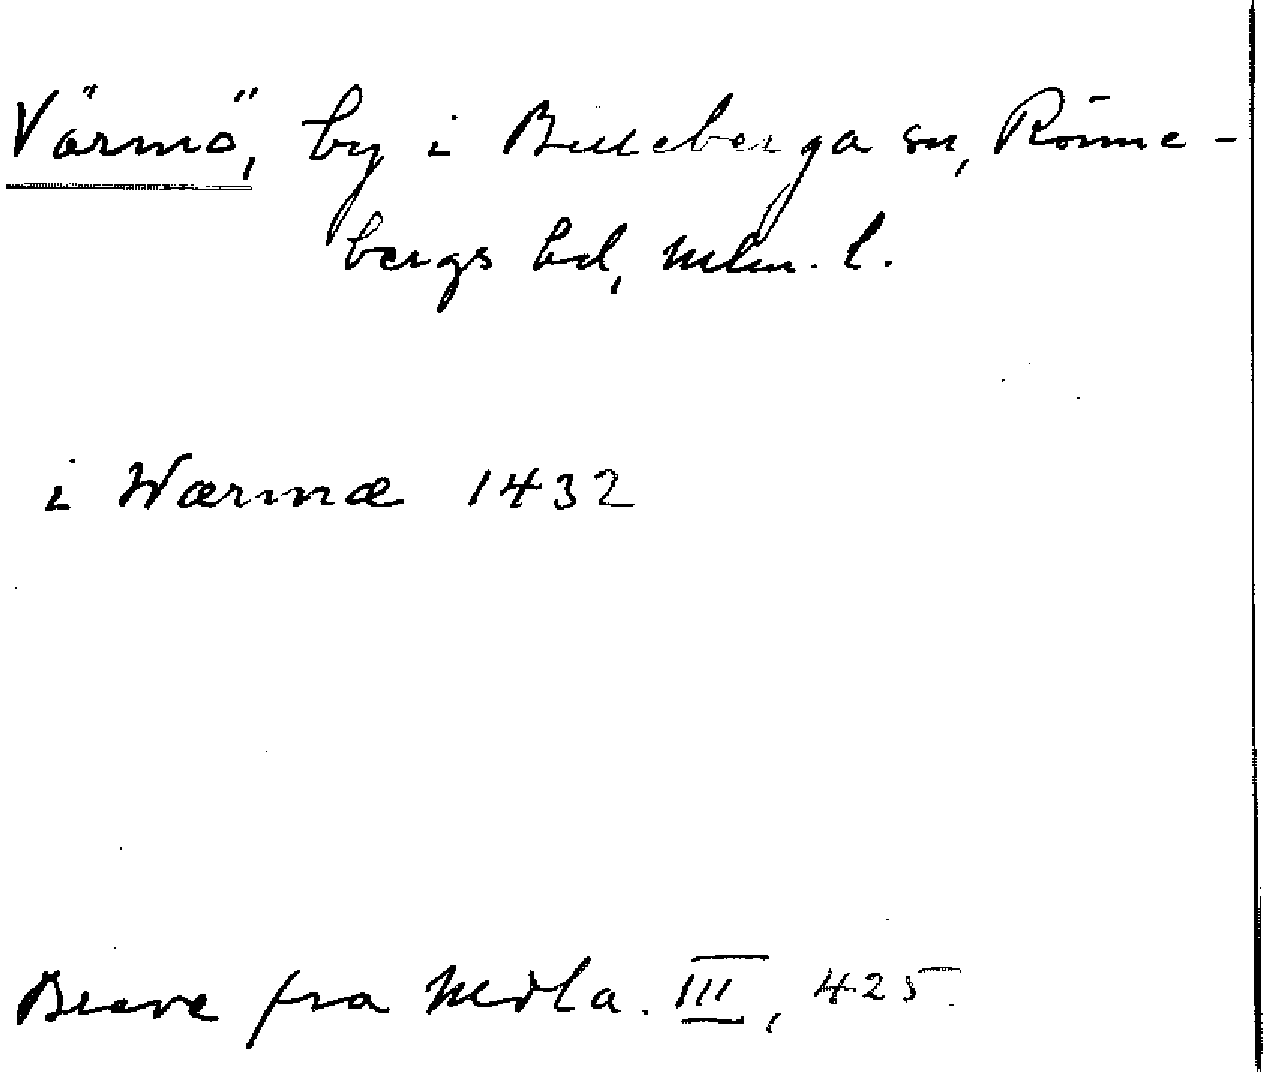 Värmö, by i Billeberga sn, Rönne-
bergs hd, Mlm. l.
i Wærmæ 1432
Breve fra Mdla. III, 425.